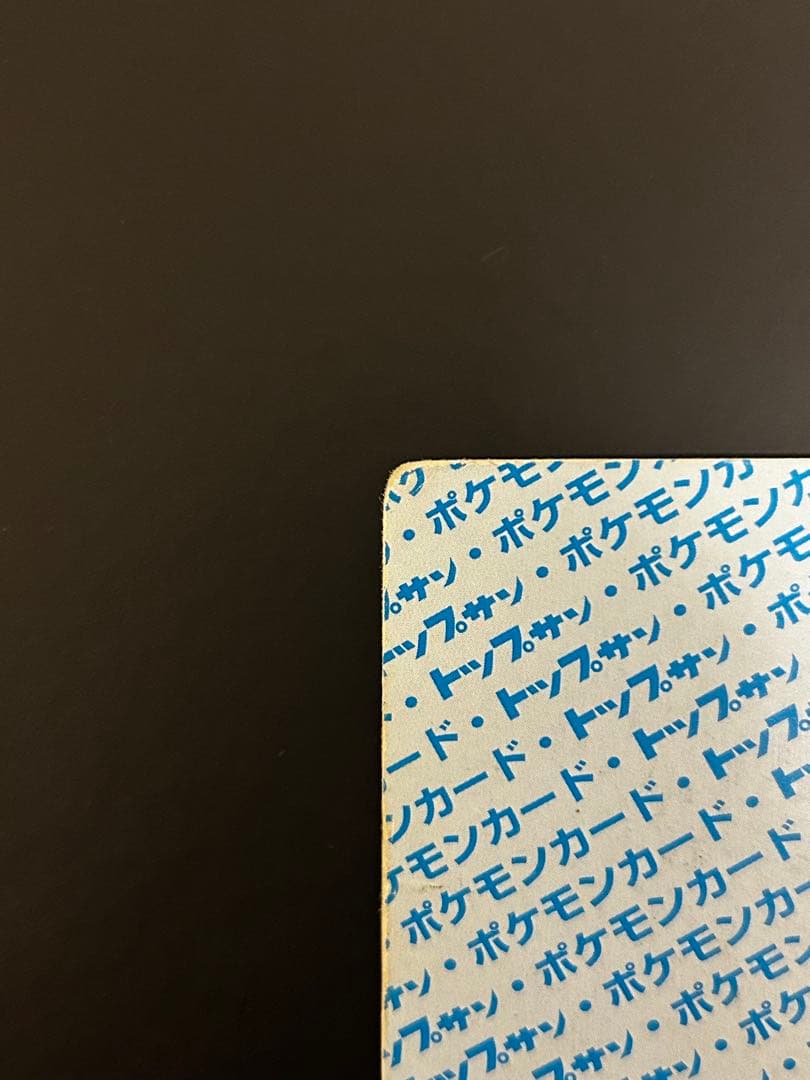 ・ポケモン
プサン・ポケモンカ
トップサン・ポケモンカ
・トップサン・ポケモンカ
ード・トップサン・ポケモ
ンカード・トップサン・ポ
ケモンカード・トップサン
・ポケモンカード・トップ
サン・ポケモンカード・ト
プサン・ポケモンカード
ップサン・ポケモンカ
ップサン・ポケモン
サン・ポケ